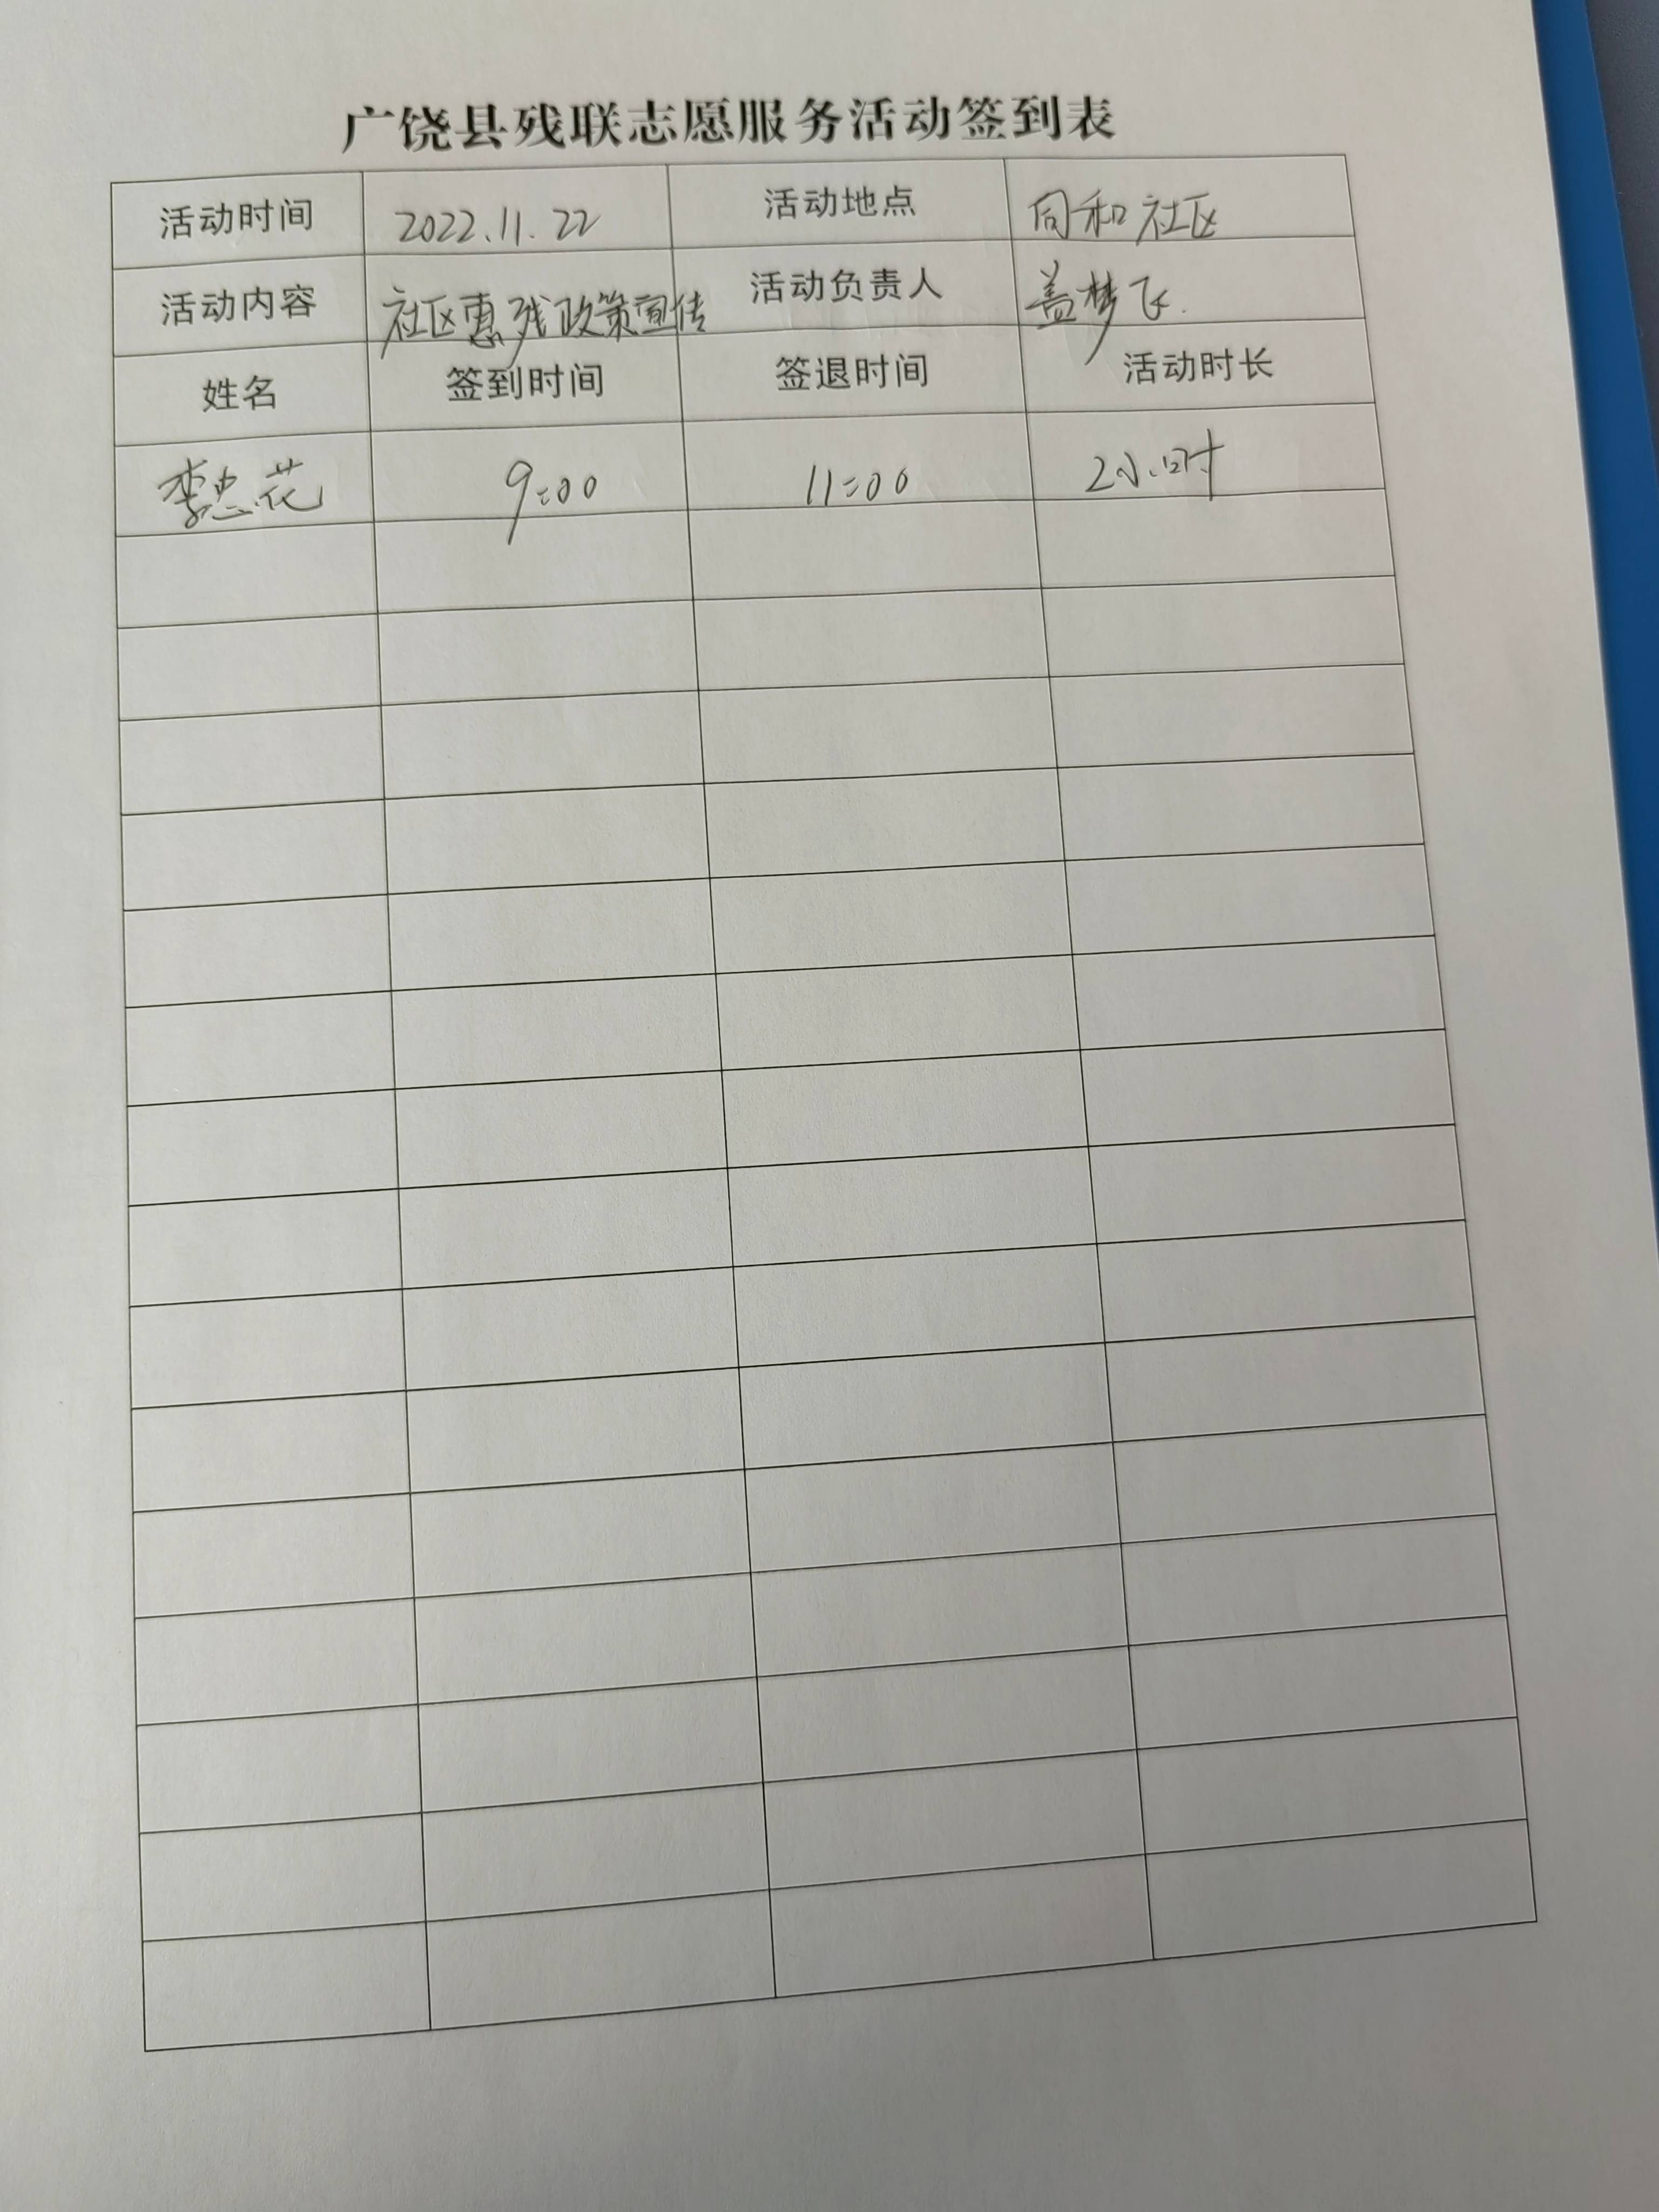 广饶县残联志愿服务活动签到表
活动时间 2022.11.22 活动地点 同和社区
活动内容 社区惠残政策宣传 活动负责人 盖梦飞
姓名 签到时间 签退时间 活动时长
李忠花 9:00 11:00 2小时